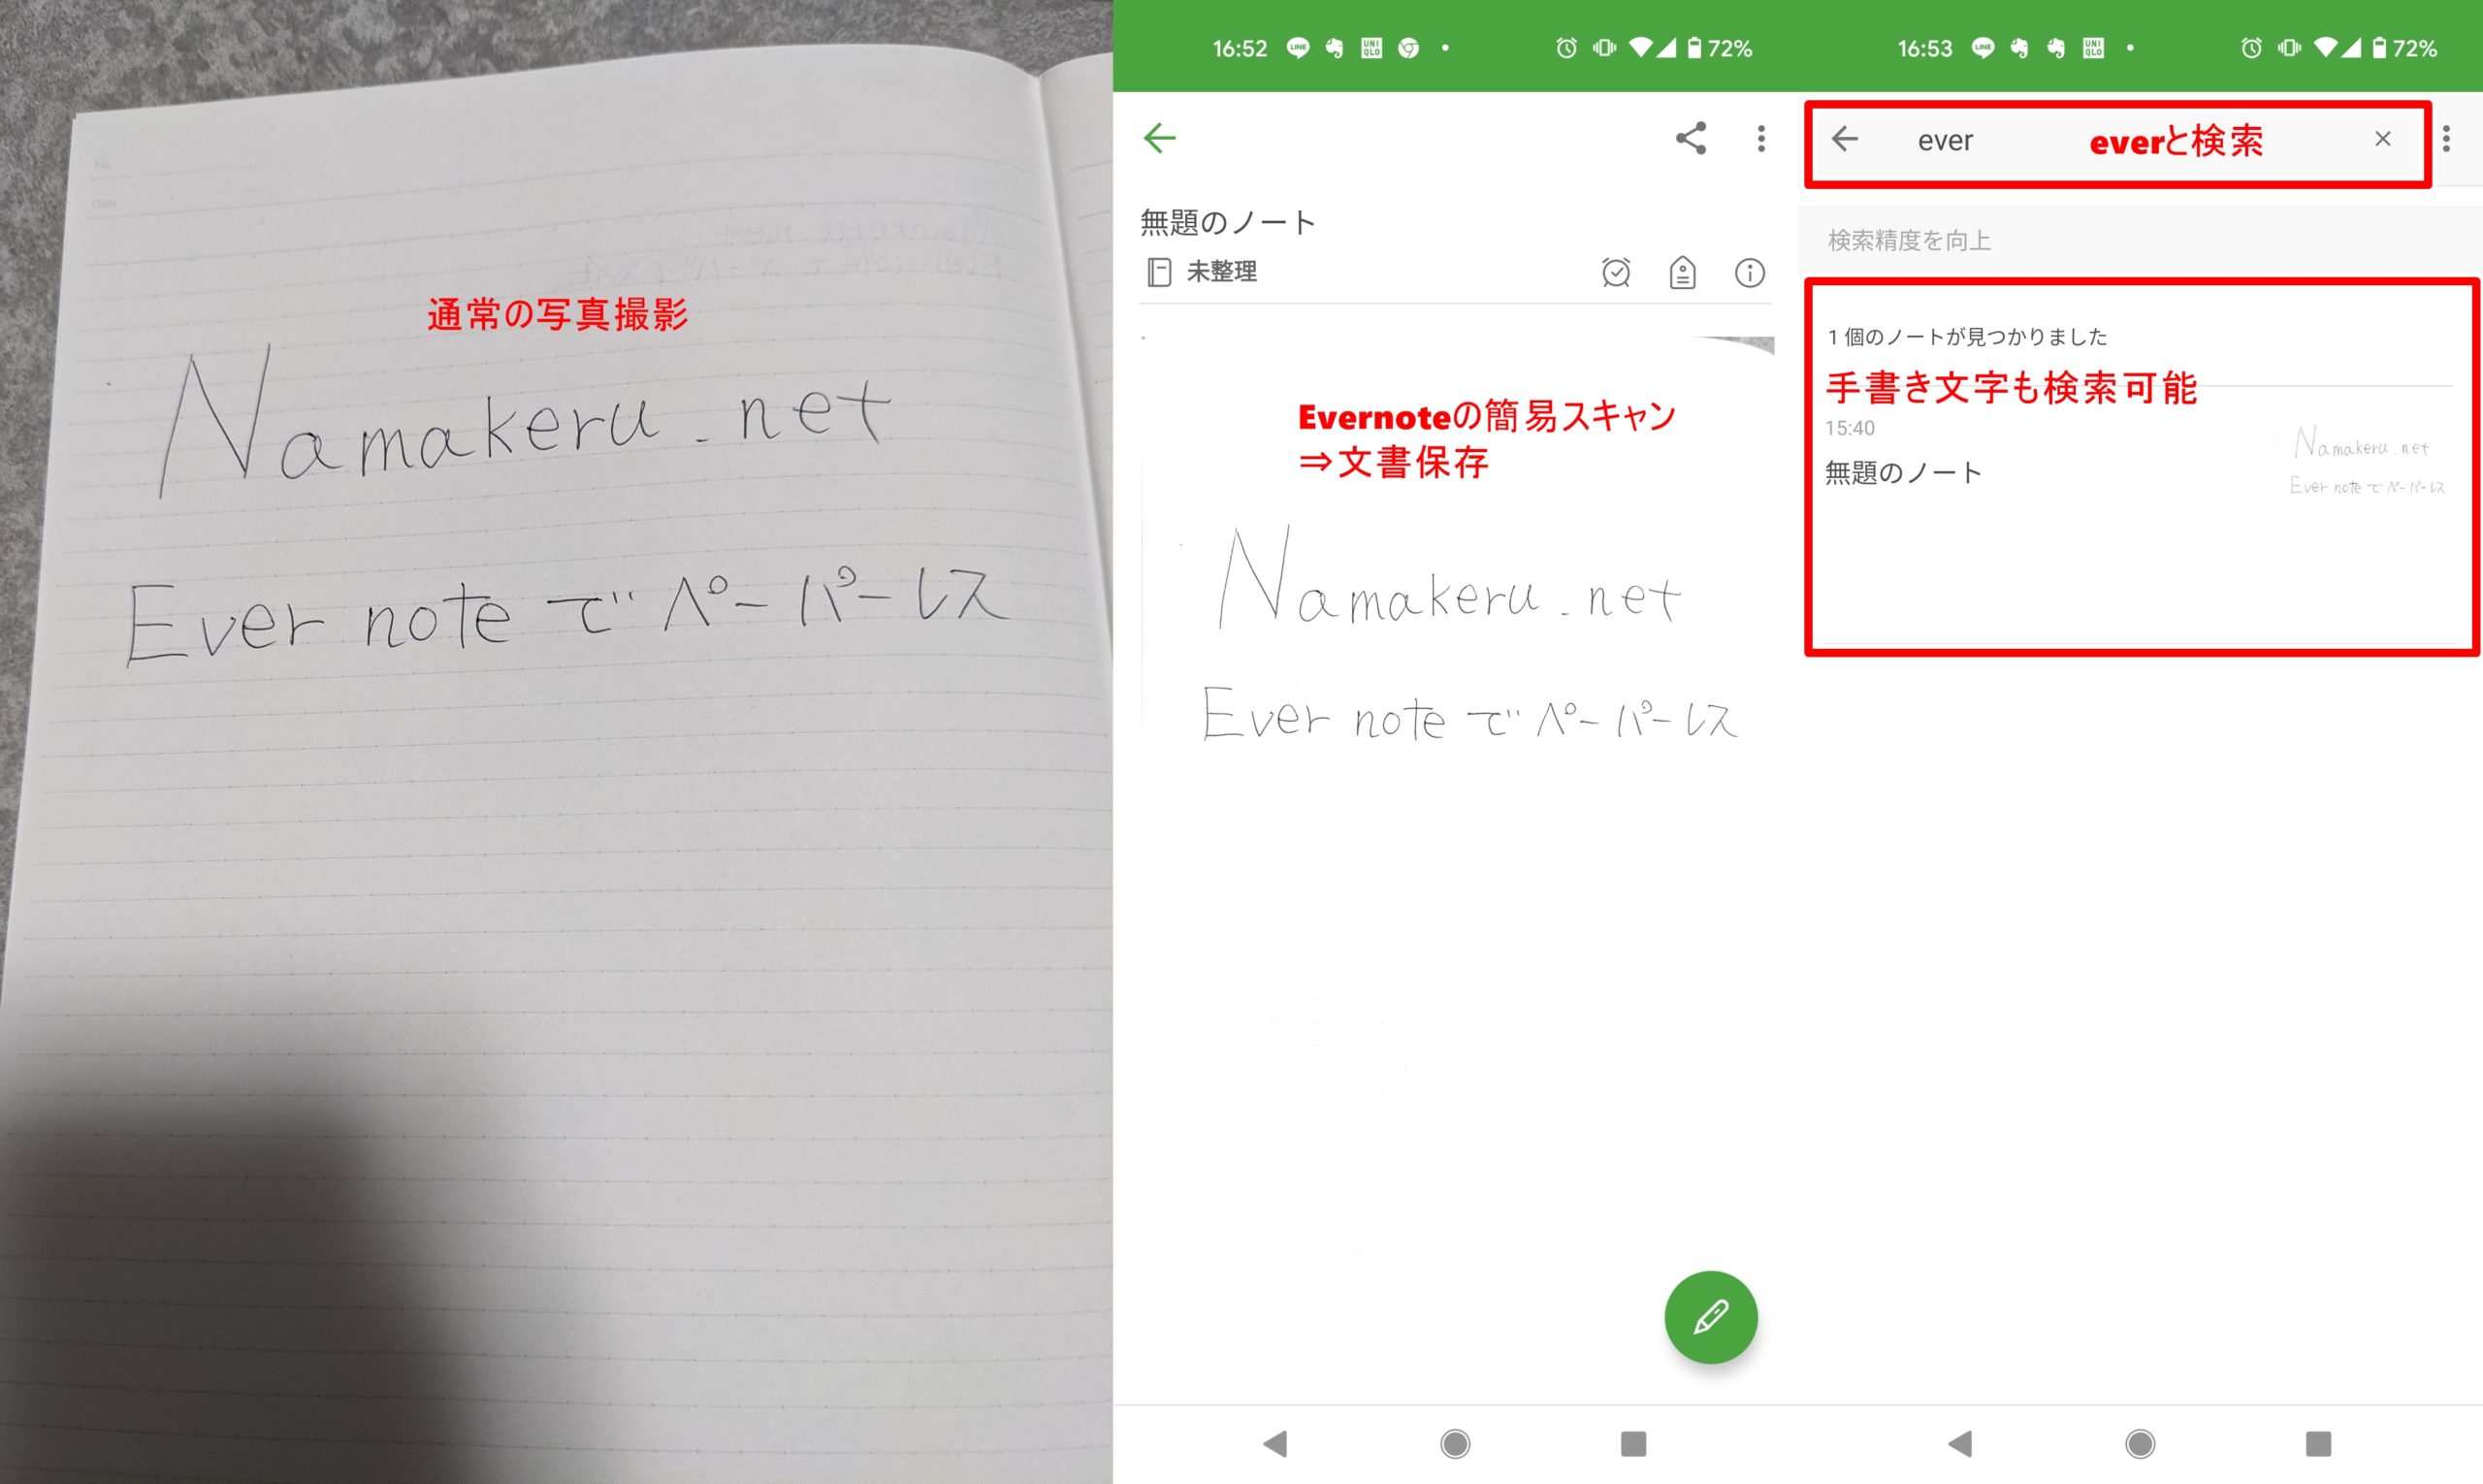 No.
Date
通常の写真撮影
Namakeru.net
Ever note でペーパーレス
16:52 LINE UNI QLO 72%
無題のノート
未整理
Evernoteの簡易スキャン
⇒文書保存
Namakeru.net
Ever note でペーパーレス
16:53 LINE UNI QLO 72%
ever everと検索
検索精度を向上
1 個のノートが見つかりました
手書き文字も検索可能
15:40
無題のノート
Namakeru.net
Ever note でペーパーレス